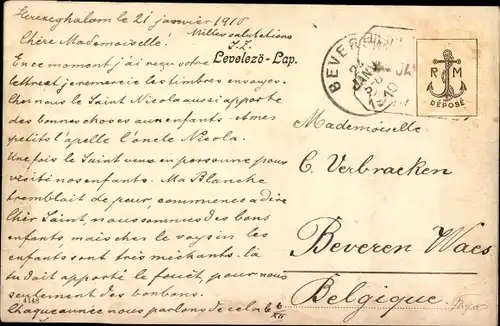 Levezeghalom le 21 janvier 1910
Milles salutations
Chère Mademoiselle!
Levelező-Lap.
En ce moment j'ai reçu votre
lettre et je remercie les timbres envoyes.
Chez nous le Saint Nicola aussi apporte
des bonnes choses aux enfants et mes
petits l'apelle l'oncle Nicola.
Une fois le Saint venu en personne pour
visiti nos enfants. Ma Blanche
tremblait de peur, commence a dire
Chèr Saint, nous sommes des bons
enfants mais chez le voysin les
enfants sont très méchants. là
tu doit apporté le fouet, pour nous
seulement des bonbons.
Chaque année nous parlons de cela le 6/XII
4148
BEVEREN
JANV
1910
R M
DÉPOSÉ
Mademoiselle
C. Verbraeken
Beveren Waes
Belgique.